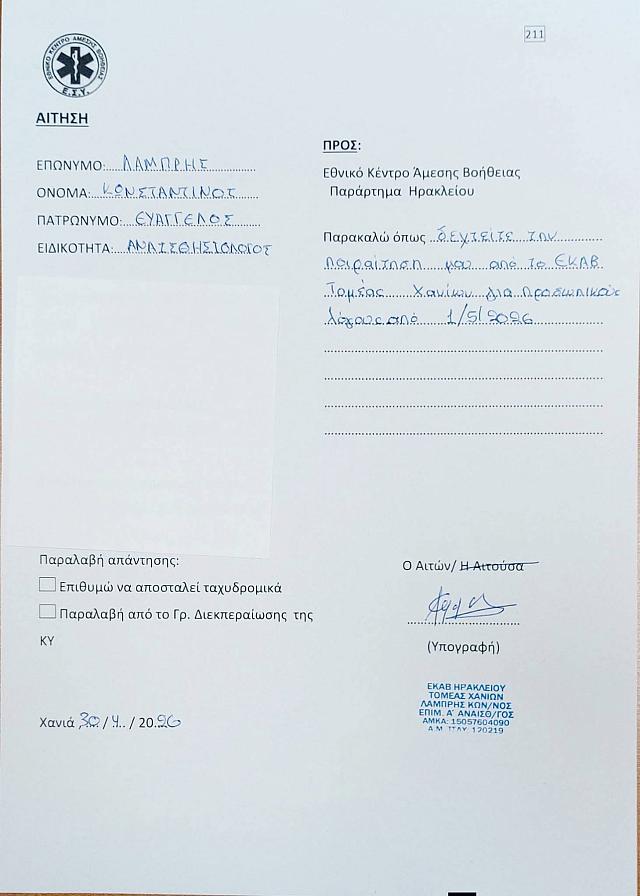 211
ΕΘΝΙΚΟ ΚΕΝΤΡΟ ΑΜΕΣΗΣ ΒΟΗΘΕΙΑΣ
Ε.Σ.Υ.
ΑΙΤΗΣΗ
ΕΠΩΝΥΜΟ: ΛΑΜΠΡΗΣ
ΟΝΟΜΑ: ΚΩΝΣΤΑΝΤΙΝΟΣ
ΠΑΤΡΩΝΥΜΟ: ΕΥΑΓΓΕΛΟΣ
ΕΙΔΙΚΟΤΗΤΑ: ΑΝΑΙΣΘΗΣΙΟΛΟΓΟΣ
ΠΡΟΣ:
Εθνικό Κέντρο Άμεσης Βοήθειας
Παράρτημα Ηρακλείου
Παρακαλώ όπως δεχτείτε την
παραίτηση μου από το ΕΚΑΒ
Τομέας Χανίων για προσωπικούς
λόγους από 1/5/2026
Παραλαβή απάντησης:
Επιθυμώ να αποσταλεί ταχυδρομικά
Παραλαβή από το Γρ. Διεκπεραίωσης της
ΚΥ
Ο Αιτών/ Η Αιτούσα
(Υπογραφή)
ΕΚΑΒ ΗΡΑΚΛΕΙΟΥ
ΤΟΜΕΑΣ ΧΑΝΙΩΝ
ΛΑΜΠΡΗΣ ΚΩΝ/ΝΟΣ
ΕΠΙΜ. Α΄ ΑΝΑΙΣΘ/ΓΟΣ
ΑΜΚΑ: 15057604090
Α.Μ. ΤΣΑΥ: 120219
Χανιά 30 / 4.. / 20.26